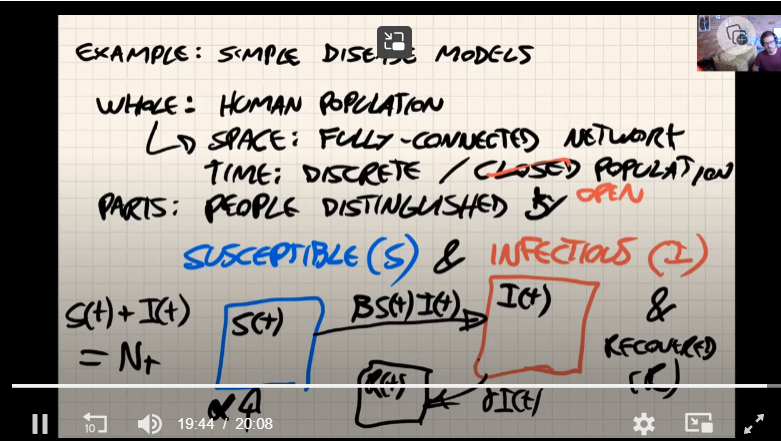 EXAMPLE: SIMPLE DISEASE MODELS
WHOLE: HUMAN POPULATION
SPACE: FULLY-CONNECTED NETWORK
TIME: DISCRETE / CLOSED POPULATION
OPEN
PARTS: PEOPLE DISTINGUISHED BY
SUSCEPTIBLE (S) & INFECTIOUS (I)
S(t) + I(t)
= N
S(t)
BS(t)I(t)
I(t)
&
RECOVERED
(R)
R(t)
γI(t)
10
19:44 / 20:08